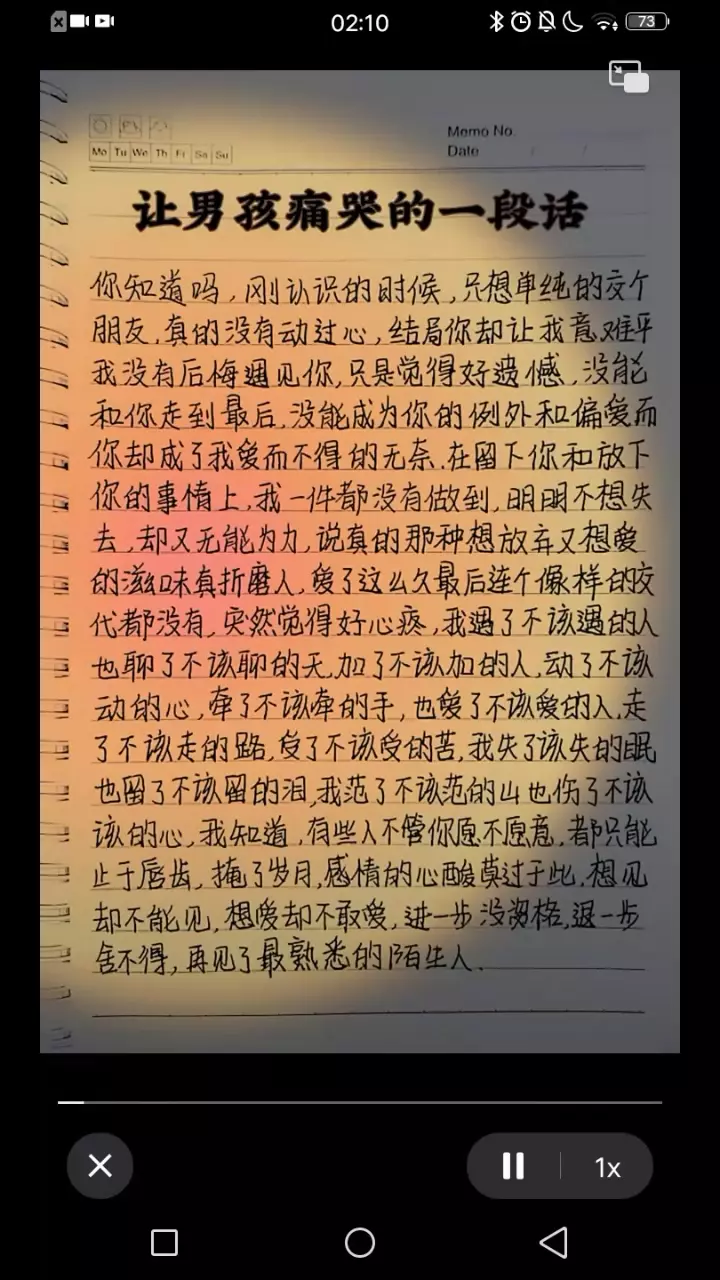 02:10
73
Memo No.
Mo Tu We Th Fr Sa Su
Date / /
让男孩痛哭的一段话
你知道吗,刚认识的时候,只想单纯的交个
朋友,真的没有动过心,结局你却让我意难平
我没有后悔遇见你,只是觉得好遗憾,没能
和你走到最后,没能成为你的例外和偏爱而
你却成了我爱而不得的无奈.在留下你和放下
你的事情上,我一件都没有做到,明明不想失
去,却又无能为力,说真的那种想放弃又想爱
的滋味真折磨人,爱了这么久最后连个像样的交
代都没有,突然觉得好心疼,我遇了不该遇的人
也聊了不该聊的天,加了不该加的人,动了不该
动的心,牵了不该牵的手,也爱了不该爱的人,走
了不该走的路,受了不该受的苦,我失了该失的眠
也留了不该留的泪,我范了不该范的山也伤了不该
该的心,我知道,有些人不管你愿不愿意,都只能
止于唇齿,掩了岁月,感情的心酸莫过于此,想见
却不能见,想爱却不敢爱,进一步没资格,退一步
舍不得,再见了最熟悉的陌生人.
1x